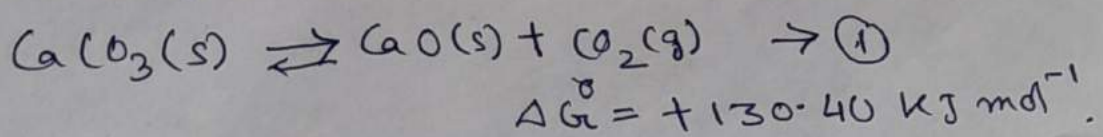 CaCO₃(s) ⇌ CaO(s) + CO₂(g) → ①
ΔG° = +130.40 KJ mol⁻¹.